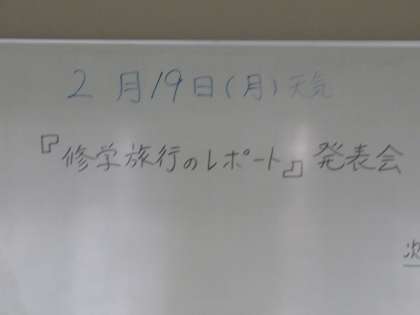 2月19日(月)天気
『修学旅行のレポート』発表会
次